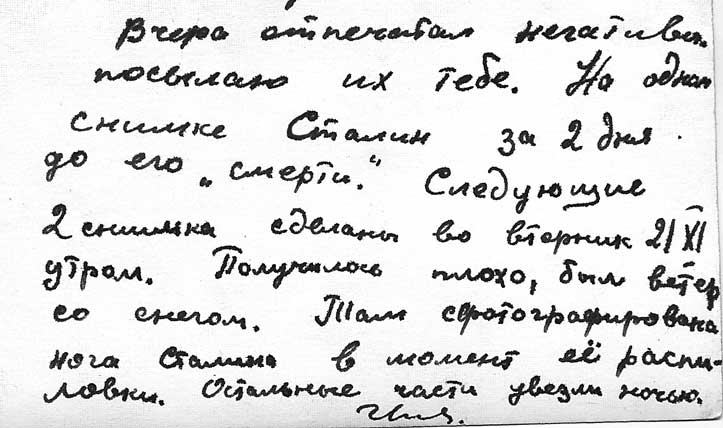 Вчера отпечатал негативы.
посылаю их тебе. На одном
снимке Сталин за 2 дня
до его „смерти." Следующие
2 снимка сделаны во вторник 21 XI
утром. Получилось плохо, был ветер
со снегом. Там сфотографирована
нога Сталина в момент её распи-
ловки. Остальные части увезли ночью.